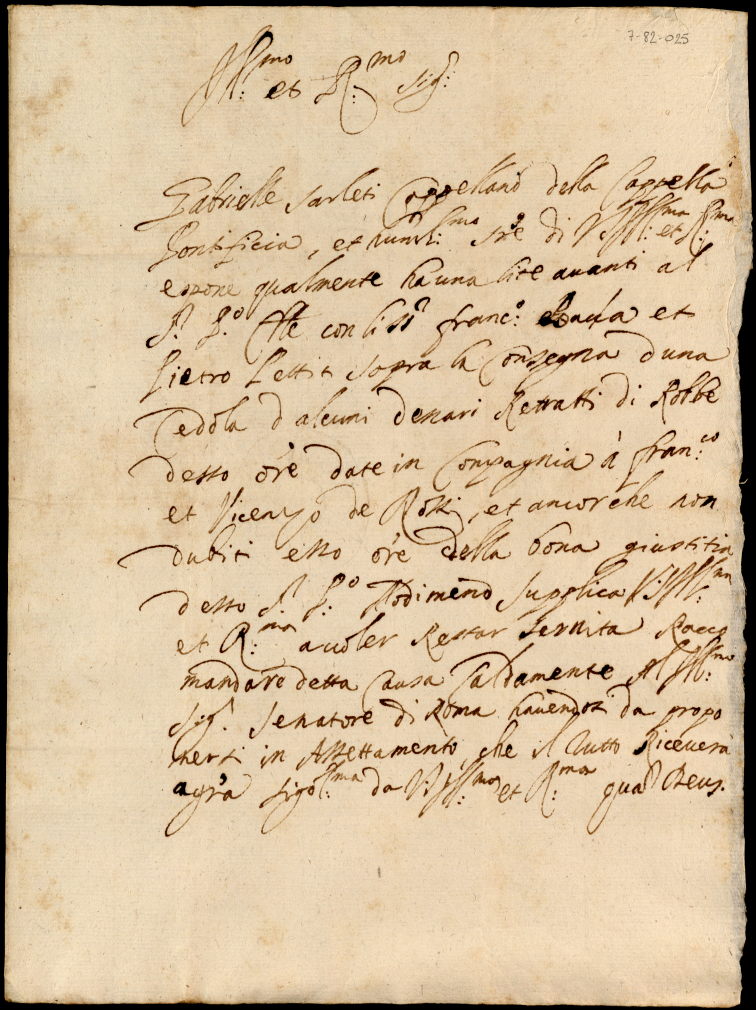 7-82-025
Ill:mo et R:mo Sig:r
Gabrielle Sarleti Cappellano della Cappella
Pontificia, et humil:mo Sre di V.S. Ill:ma et R:ma
espone qualmente ha una lite avanti al
S.r P.o Clte con li Sri Franc:o et
Pietro Pettit sopra la Consegna d'una
Cedola d'alcuni denari Retratti di Robbe
desso o're date in Compagnia à Fran:co
et Vicenzo de Rossi, et ancorche non
dubiti esso o're della bona giustitia
desso S.r P.o Nodimeno supplica V.S. Ill:ma
et R:ma a voler Restar Servita Racco
mandare detta Causa Caldamente Al Ill:mo
Sig.r Senatore di Roma havendosi da propo
nersi in Assettamento, che il tutto Riceverà
a gr'a sigol:ma da V.S. Ill:ma et R:ma qua Deus.